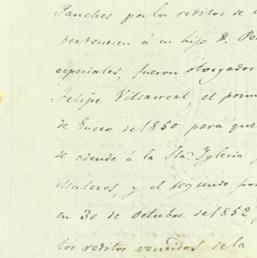 Sanches por los reditos de
pertenecen á su hijo D. Pe
especiales, fueron otorgados
Felipe Villarreal, el prim
de Enero de 1850 para que
se adeude á la Sta. Iglesia
y el segundo por
en 30 de Octubre de 1852,
los reditos vencidos de la